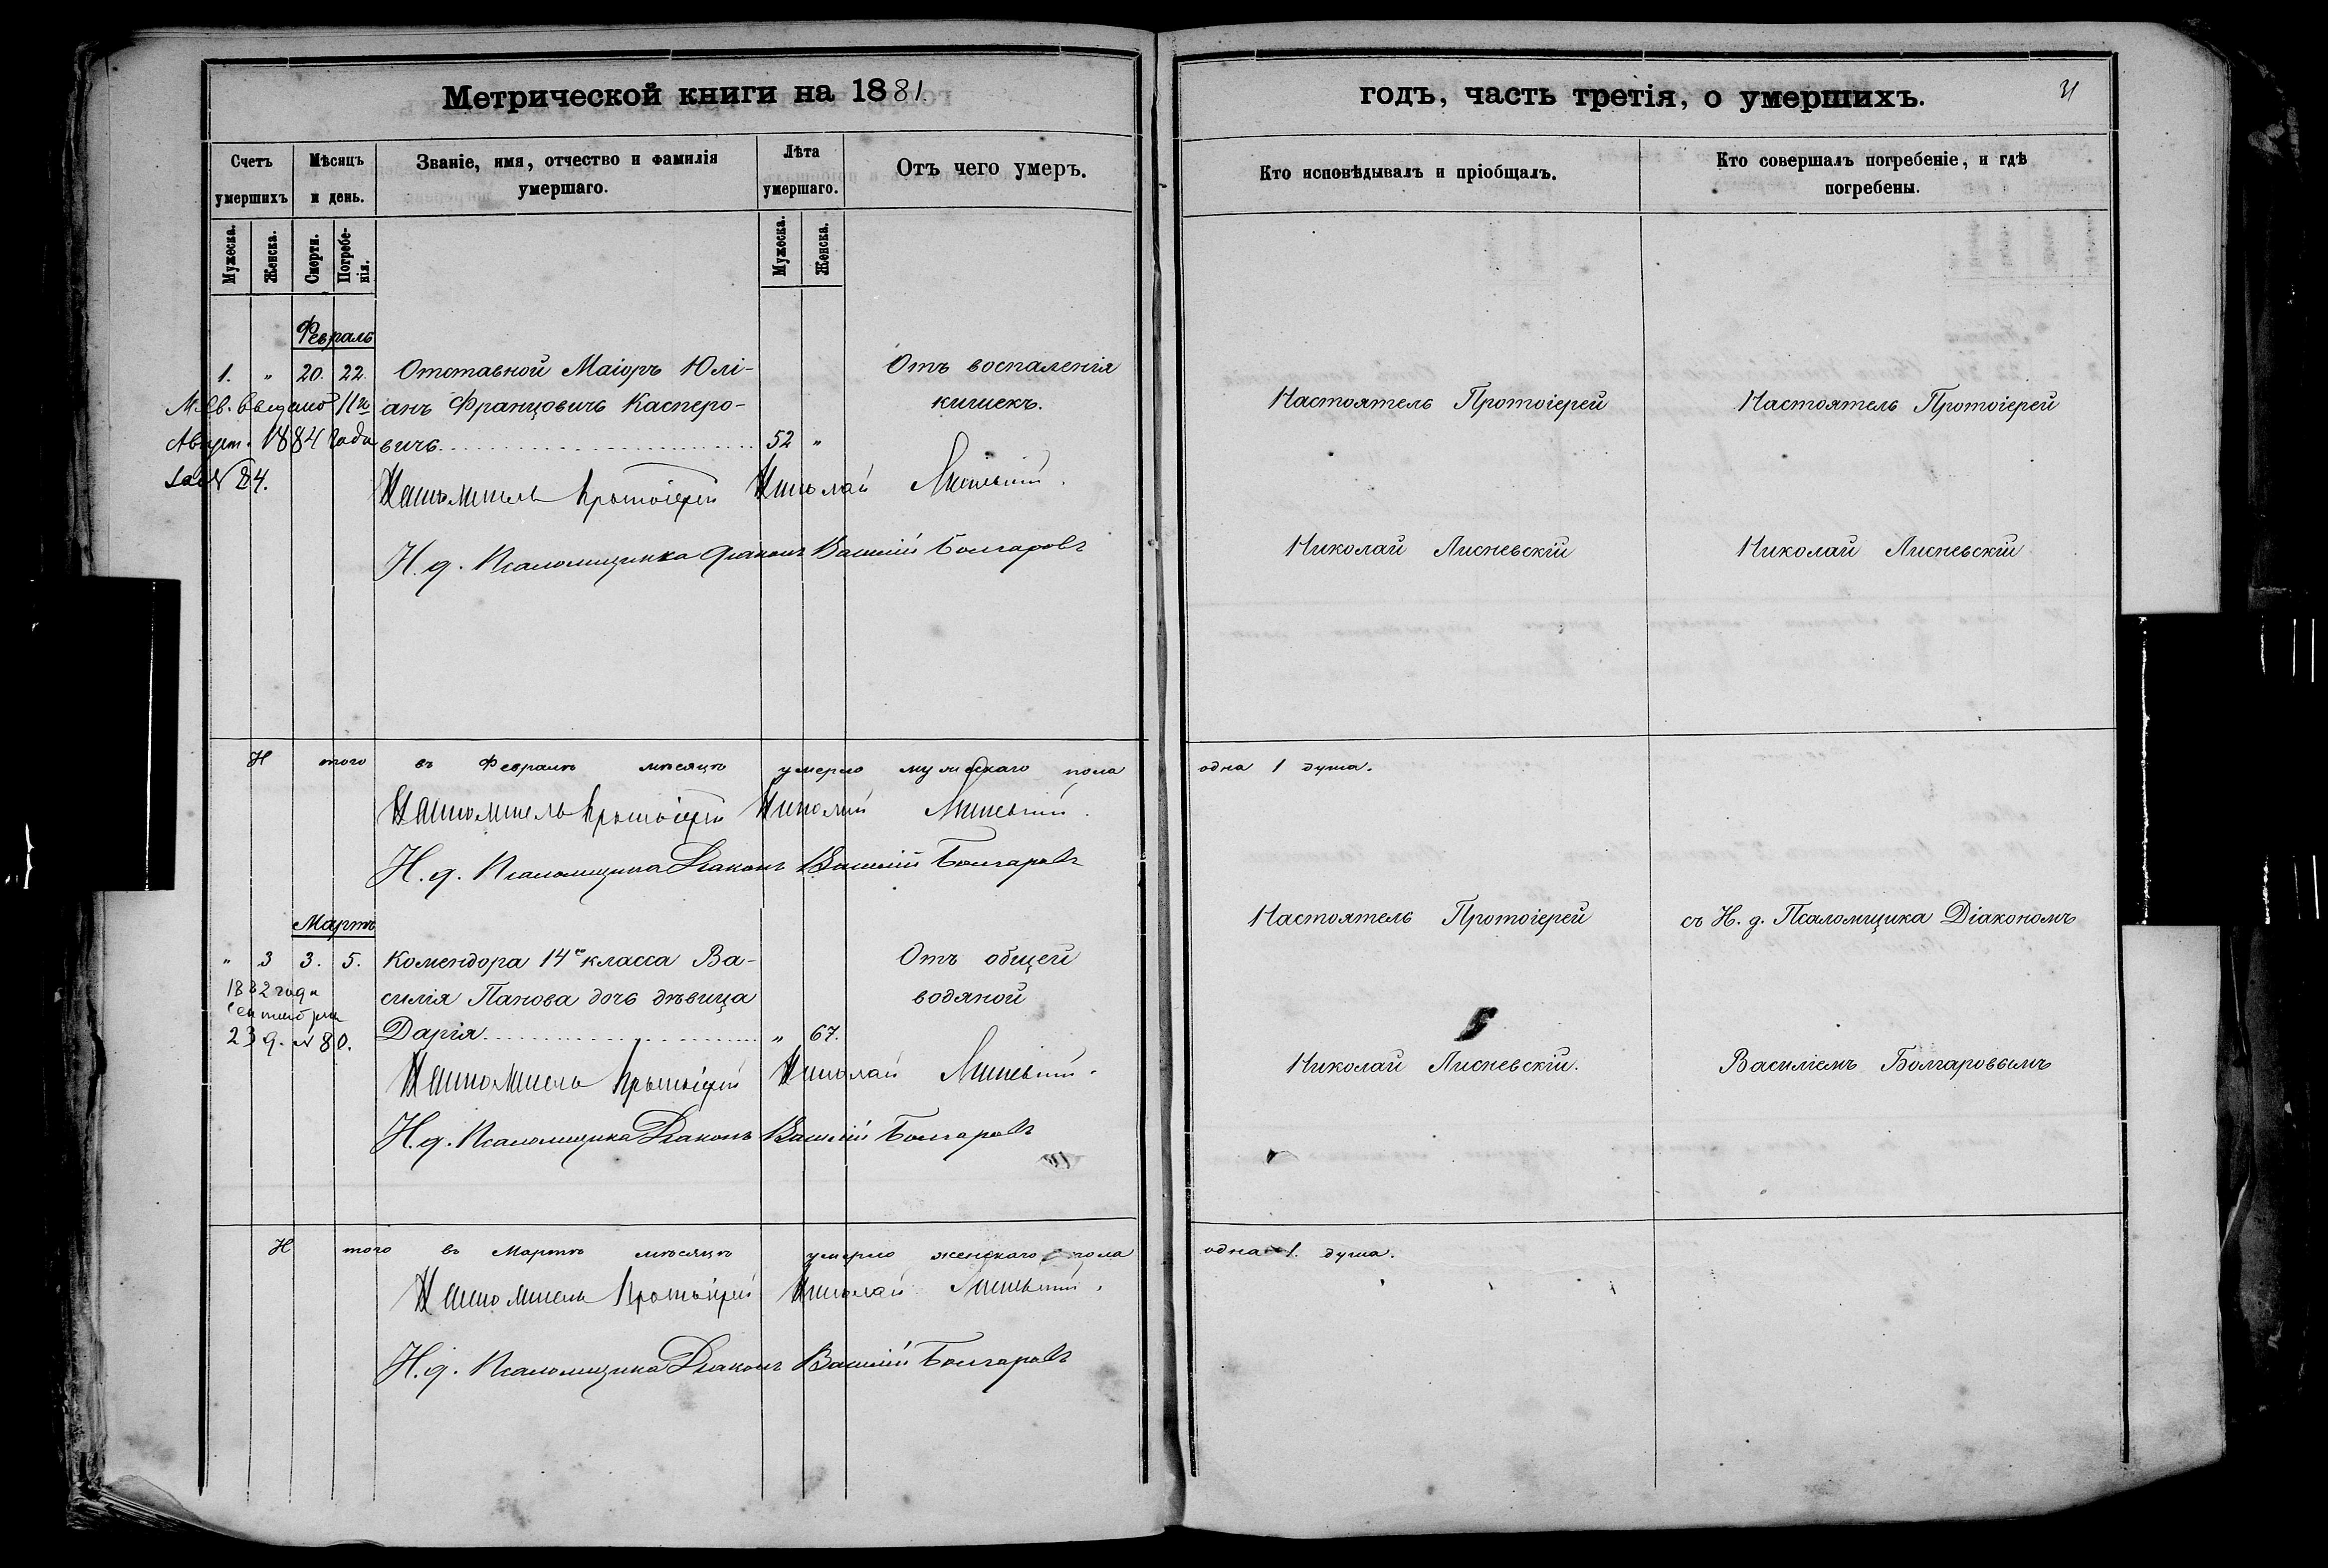 Метрической книги на 1881.
годъ, часть третія, о умершихъ.
31
Счетъ умершихъ
Мѣсяцъ и день.
Званіе, имя, отчество и фамилія умершаго.
Лѣта умершаго.
Отъ чего умеръ.
Кто исповѣдывалъ и пріобщалъ.
Кто совершалъ погребеніе, и гдѣ погребены.
Мужеска.
Женска.
Смерти.
Погребенія.
Мужеска.
Женска.
Февраль
1. " 20. 22. Отставной Маіоръ Юлі-
анъ Францовичъ Касперо-
вичъ 52 "
Отъ воспаленія
кишекъ.
Настоятель Протоіерей
Николай Лисневскій
Настоятель Протоіерей
Николай Лисневскій
М. Св. выдано 11го
Август. 1884 года
за № 84.
Настоятель Протоіерей Николай Лисневскій.
И. д. Псаломщика Діаконъ Василій Болгаровъ
Итого въ Февралѣ мѣсяцѣ умерло мужескаго пола одна 1 душа.
Настоятель Протоіерей Николай Лисневскій.
И. д. Псаломщика Діаконъ Василій Болгаровъ
Мартъ
" 3 3. 5. Комендора 14го класса Ва-
силія Панова дочь дѣвица
Дарія " 67.
Отъ общей
водяной
Настоятель Протоіерей
Николай Лисневскій.
съ И. д. Псаломщика Діакономъ
Василіемъ Болгаровымъ
1882 года
Сентября
23 д. № 80.
Настоятель Протоіерей Николай Лисневскій.
И. д. Псаломщика Діаконъ Василій Болгаровъ
Итого въ Мартѣ мѣсяцѣ умерло женскаго пола одна 1. душа.
Настоятель Протоіерей Николай Лисневскій.
И. д. Псаломщика Діаконъ Василій Болгаровъ